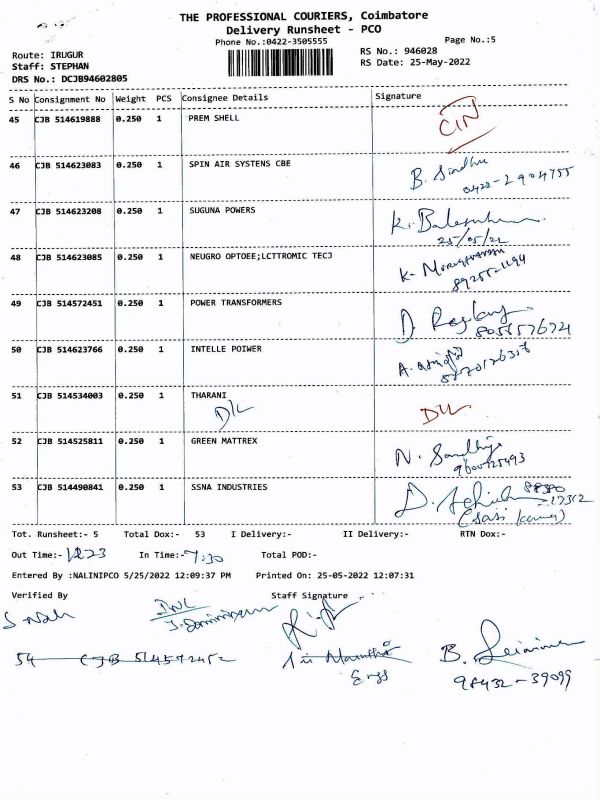 THE PROFESSIONAL COURIERS, Coimbatore
Delivery Runsheet - PCO
Phone No.:0422-3505555
Page No.:5
Route: IRUGUR
RS No.: 946028
Staff: STEPHAN
RS Date: 25-May-2022
DRS No.: DCJB94602805
S No Consignment No Weight PCS Consignee Details Signature
45 CJB 514619888 0.250 1 PREM SHELL
46 CJB 514623083 0.250 1 SPIN AIR SYSTENS CBE B. Sindhu
0422-2904755
47 CJB 514623208 0.250 1 SUGUNA POWERS
25/05/22
48 CJB 514623085 0.250 1 NEUGRO OPTOEE;LCTTROMIC TECJ
49 CJB 514572451 0.250 1 POWER TRANSFORMERS
50 CJB 514623766 0.250 1 INTELLE POIWER
51 CJB 514534003 0.250 1 THARANI
D/L
52 CJB 514525811 0.250 1 GREEN MATTREX N. Sandhiya
9600725493
53 CJB 514490841 0.250 1 SSNA INDUSTRIES
Tot. Runsheet:- 5 Total Dox:- 53 I Delivery:- II Delivery:- RTN Dox:-
Out Time:- In Time:- 7:30 Total POD:-
Entered By :NALINIPCO 5/25/2022 12:09:37 PM Printed On: 25-05-2022 12:07:31
Verified By Staff Signature
54 CJB 514572452
B.
98432-39099